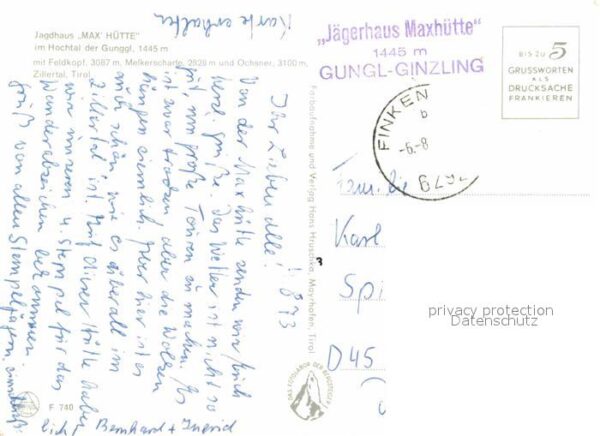 Jagdhaus „MAX' HÜTTE"
im Hochtal der Gunggl, 1445 m
mit Feldkopf, 3087 m, Melkerscharte, 2828 m und Ochsner, 3100 m,
Zillertal, Tirol
Karte erhalten
„Jägerhaus Maxhütte"
1445 m
GUNGL-GINZLING
BIS ZU 5
GRUSSWORTEN
ALS
DRUCKSACHE
FRANKIEREN
FINKEN
b
-6.-8
6295
! 8 73
Ihr Lieben alle!
Von der Max hütte senden wir Euch
herzl. Grüße. Das Wetter ist nicht so
gut um große Touren zu machen. Es
ist zwar trocken aber die Wolken
hängen ziemlich. Aber hier ist es
auch schön wie es überall im
Zillertal ist. Auf dieser Hütte haben
wir unseren 4. Stempel für das
Wanderabzeichen bekommen.
Gruß von allen Stempeljägern
Bernhard + Ingrid
Farbaufnahme und Verlag Hans Hruschka, Mayrhofen, Tirol
Familie
Karl
Spi
D 45
3
privacy protection
Datenschutz
F 740